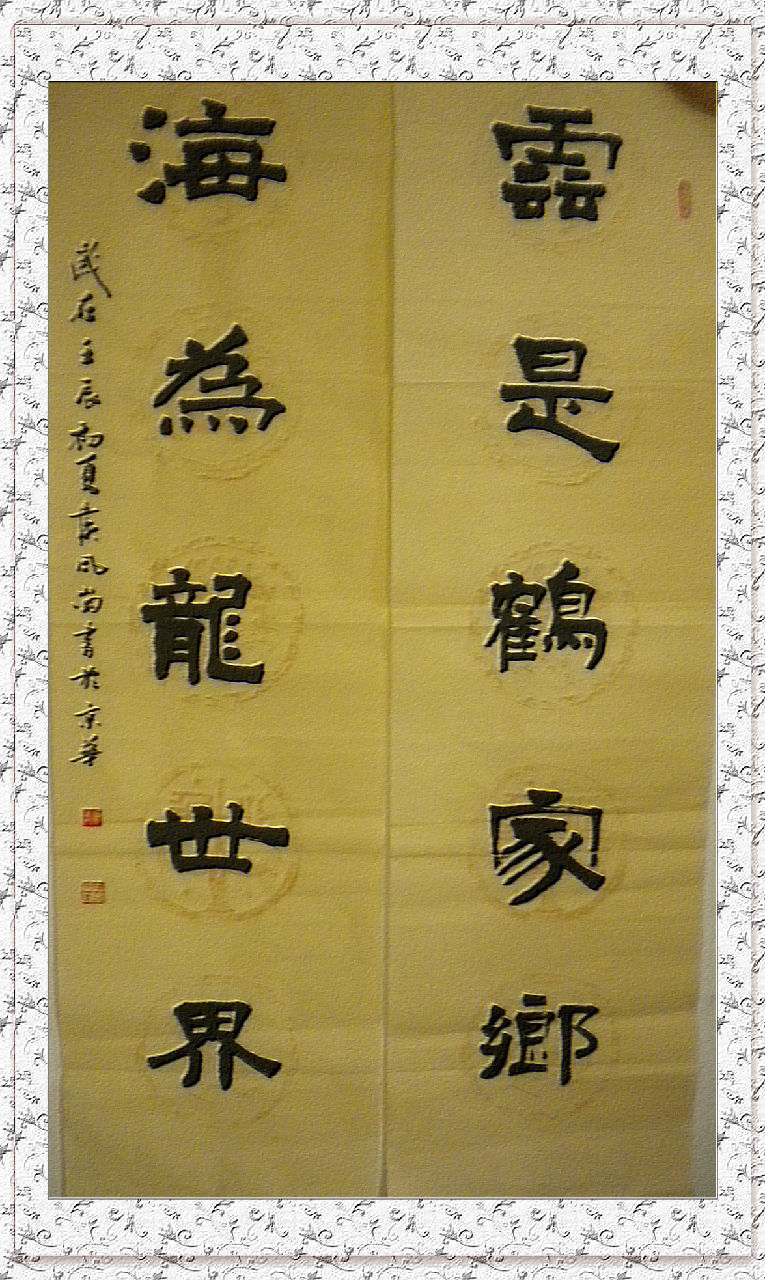 雲是鶴家鄉
海為龍世界
歲在壬辰初夏風尚書於京華